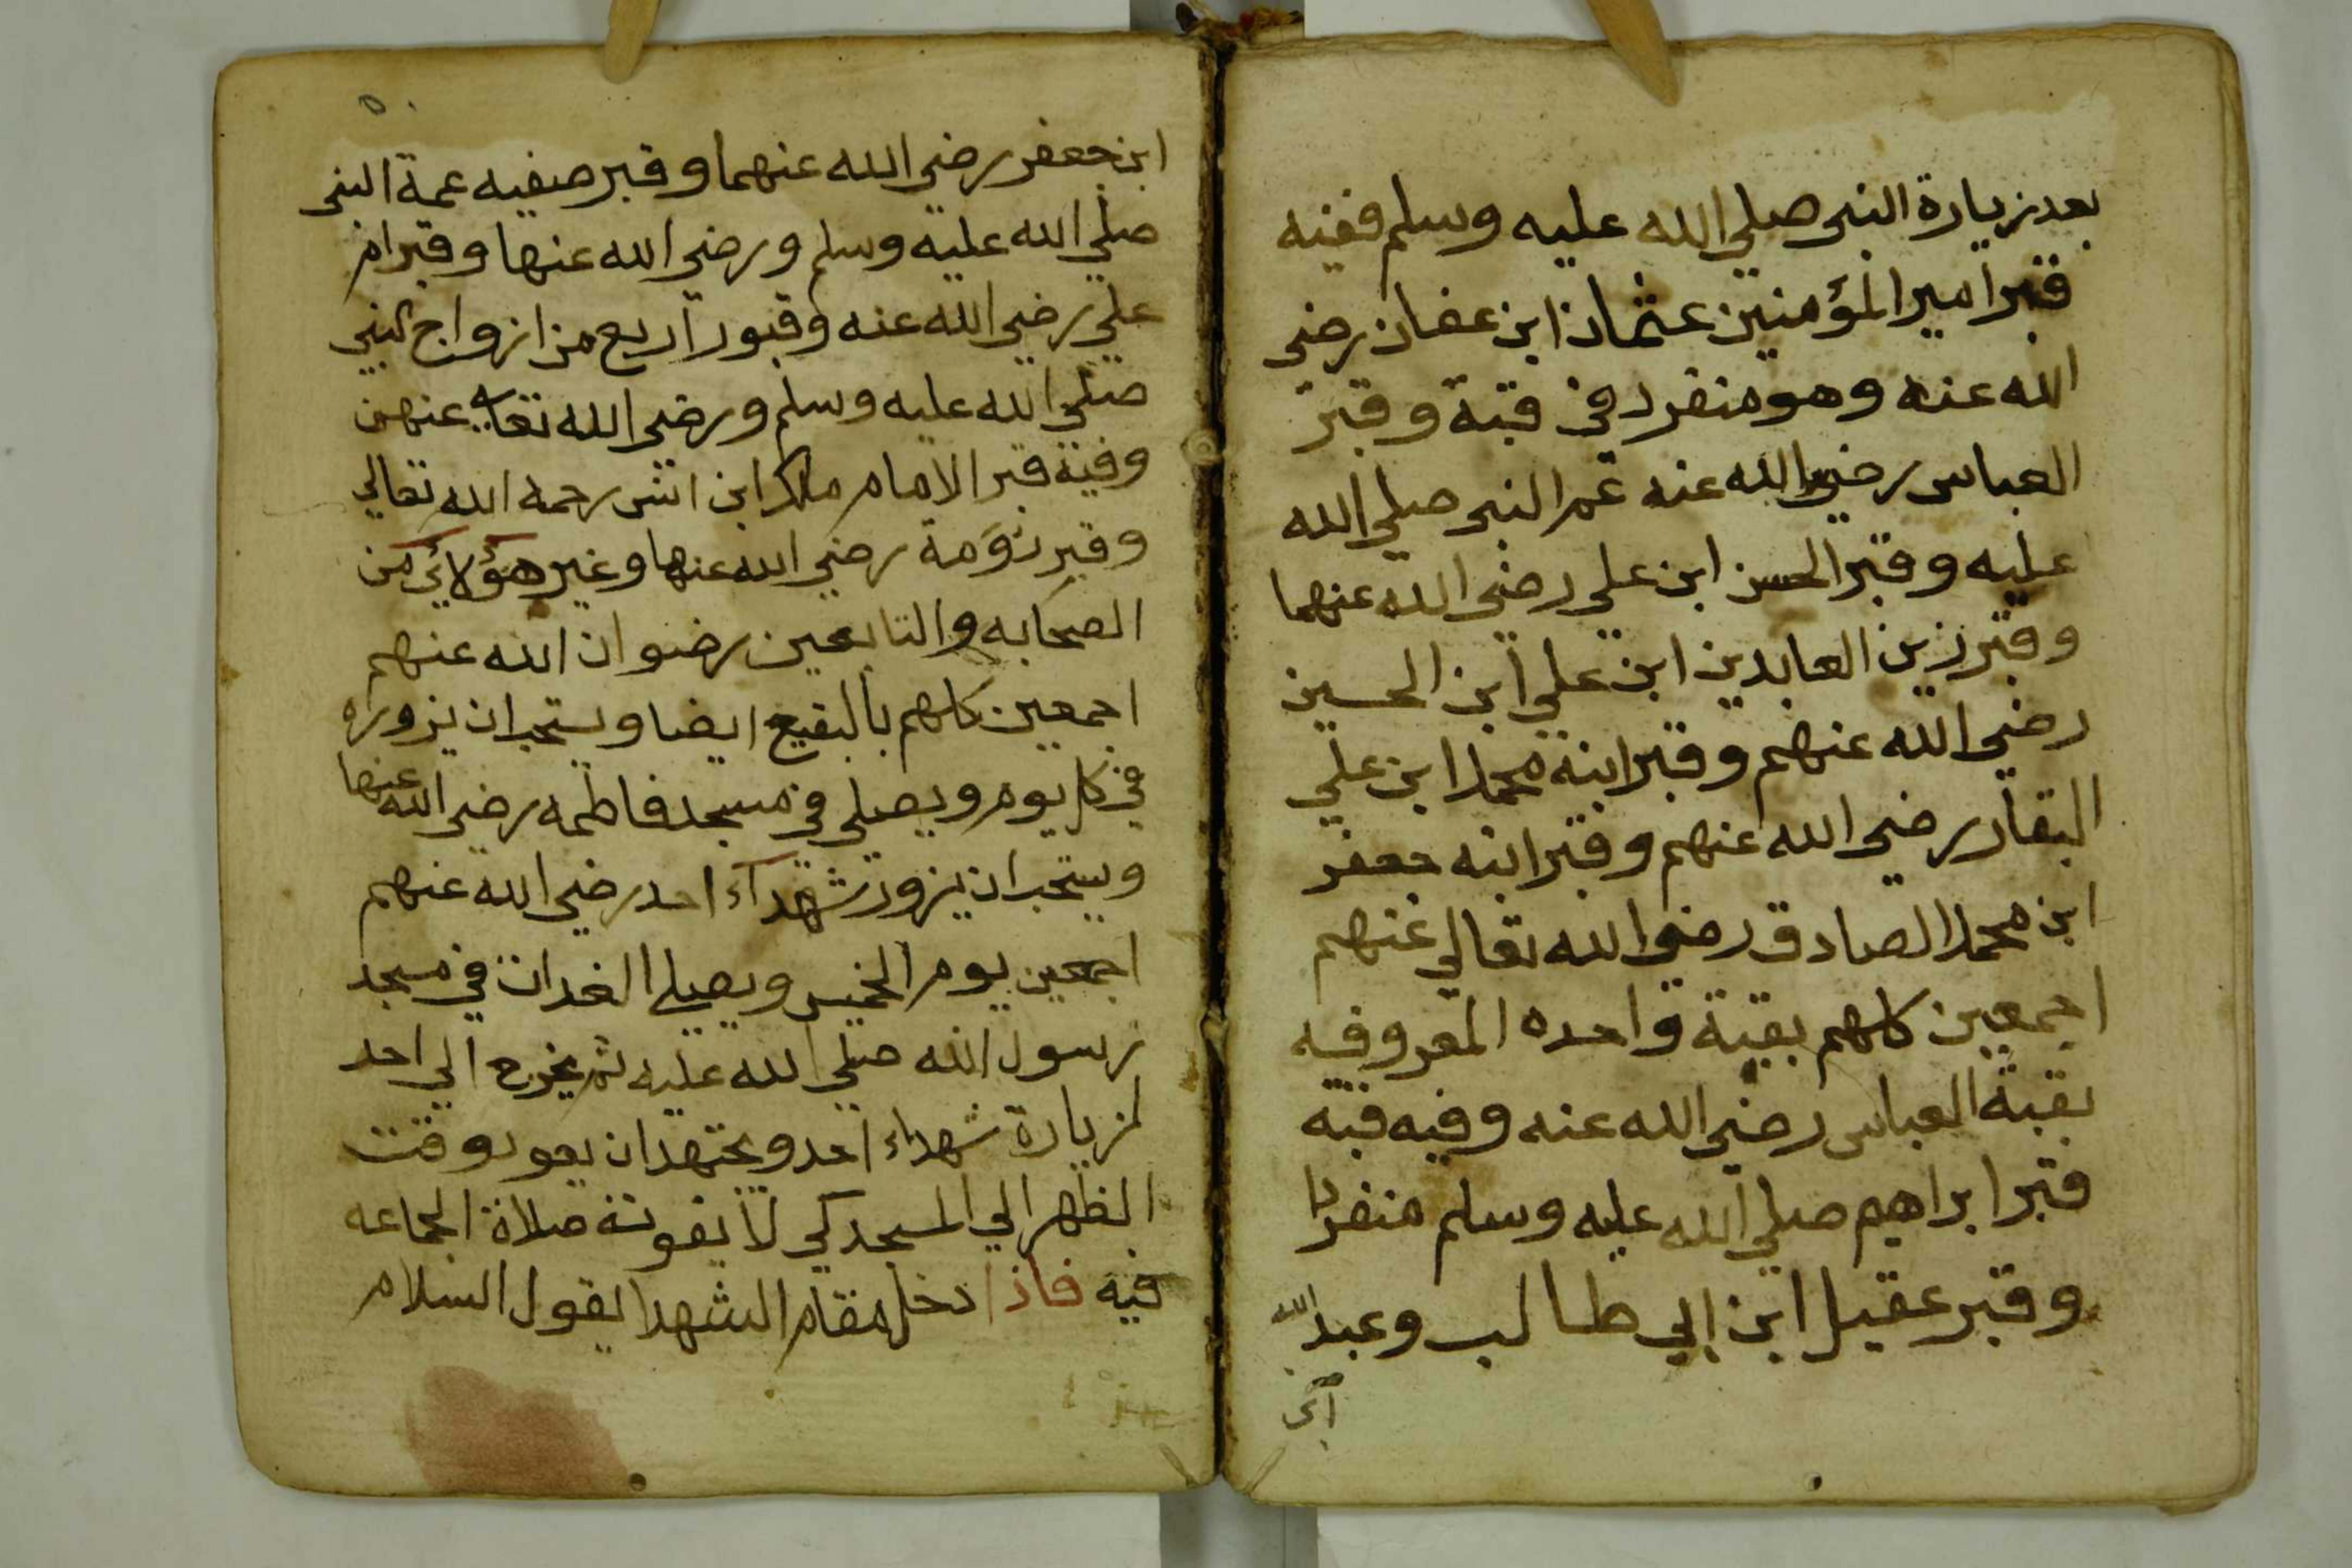 بعد زيارة النبي صلي الله عليه وسلم ففيه
قبر امير المؤمنين عثمان ابن عفان رضي
الله عنه وهو منفرد في قبة وقبر
العباس رضي الله عنه عم النبي صلي الله
عليه وقبر الحسن ابن علي رضي الله عنهما
وقبر زين العابدين ابن علي ابن الحسين
رضي الله عنهم وقبر ابنه محمد ابن علي
البقار رضي الله عنهم وقبر ابنه جعفر
ابن محمد الصادق رضي الله تعالي عنهم
اجمعين كلهم بقبة واحده المعروفيه
بقبة العباس رضي الله عنه وفيه قبه
قبر ابراهيم صلي الله عليه وسلم منفردا
وقبر عقيل ابن ابي طالب وعبد الله
ابن
٥٠
ابن جعفر رضي الله عنهما وقبر صفيه عمة النبي
صلي الله عليه وسلم ورضي الله عنها وقبر ام
علي رضي الله عنه وقبور اربع من ازواج النبي
صلي الله عليه وسلم ورضي الله تعالى عنهن
وفيه قبر الامام مالك ابن انس رحمه الله تعالي
وقبر رؤمة رضي الله عنها وغير هؤلائي من
الصحابه والتابعين رضوان الله عنهم
اجمعين كلهم بالبقيع ايضا ويستحب ان يزوره
في كل يوم ويصلي في مسجد فاطمه رضي الله عنها
ويستحب ان يزور شهدآء احد رضي الله عنهم
اجمعين يوم الخميس ويصلي الغدات في مسجد
رسول الله صلي الله عليه ثم يخرج الي احد
لزيارة شهداء احد ويجتهد ان يعود وقت
الظهر الي المسجد كي لا يفوته صلاة الجماعه
فيه فاذا دخل مقام الشهدا يقول السلام